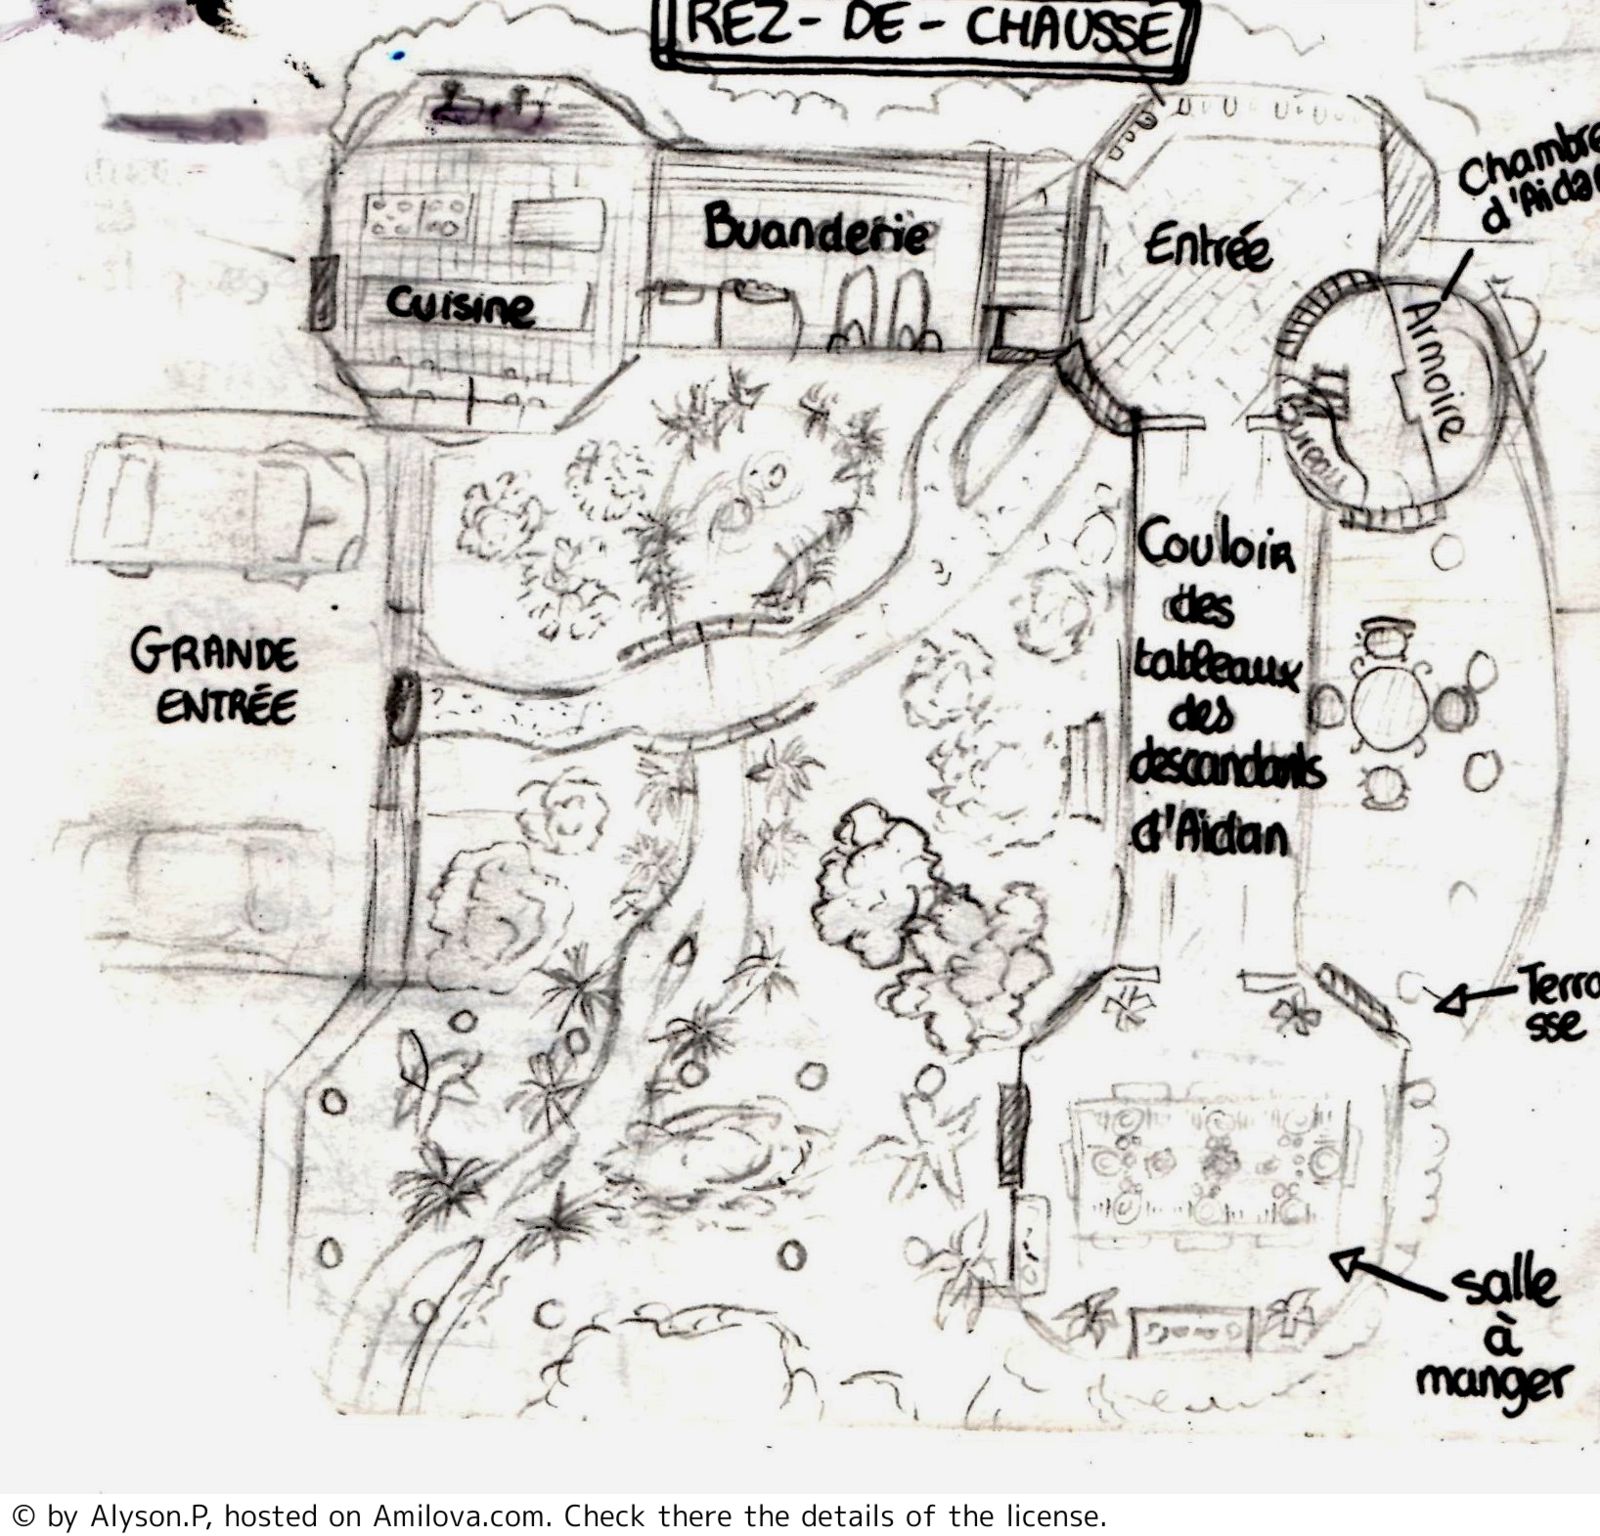 REZ-DE-CHAUSSE
Chambre
d'Aidan
Buanderie
Entrée
Cuisine
Armoire
Bureau
Couloir
des
tableaux
des
descandants
d'Aidan
GRANDE
ENTRÉE
Terra
sse
salle
à
manger
© by Alyson.P, hosted on Amilova.com. Check there the details of the license.